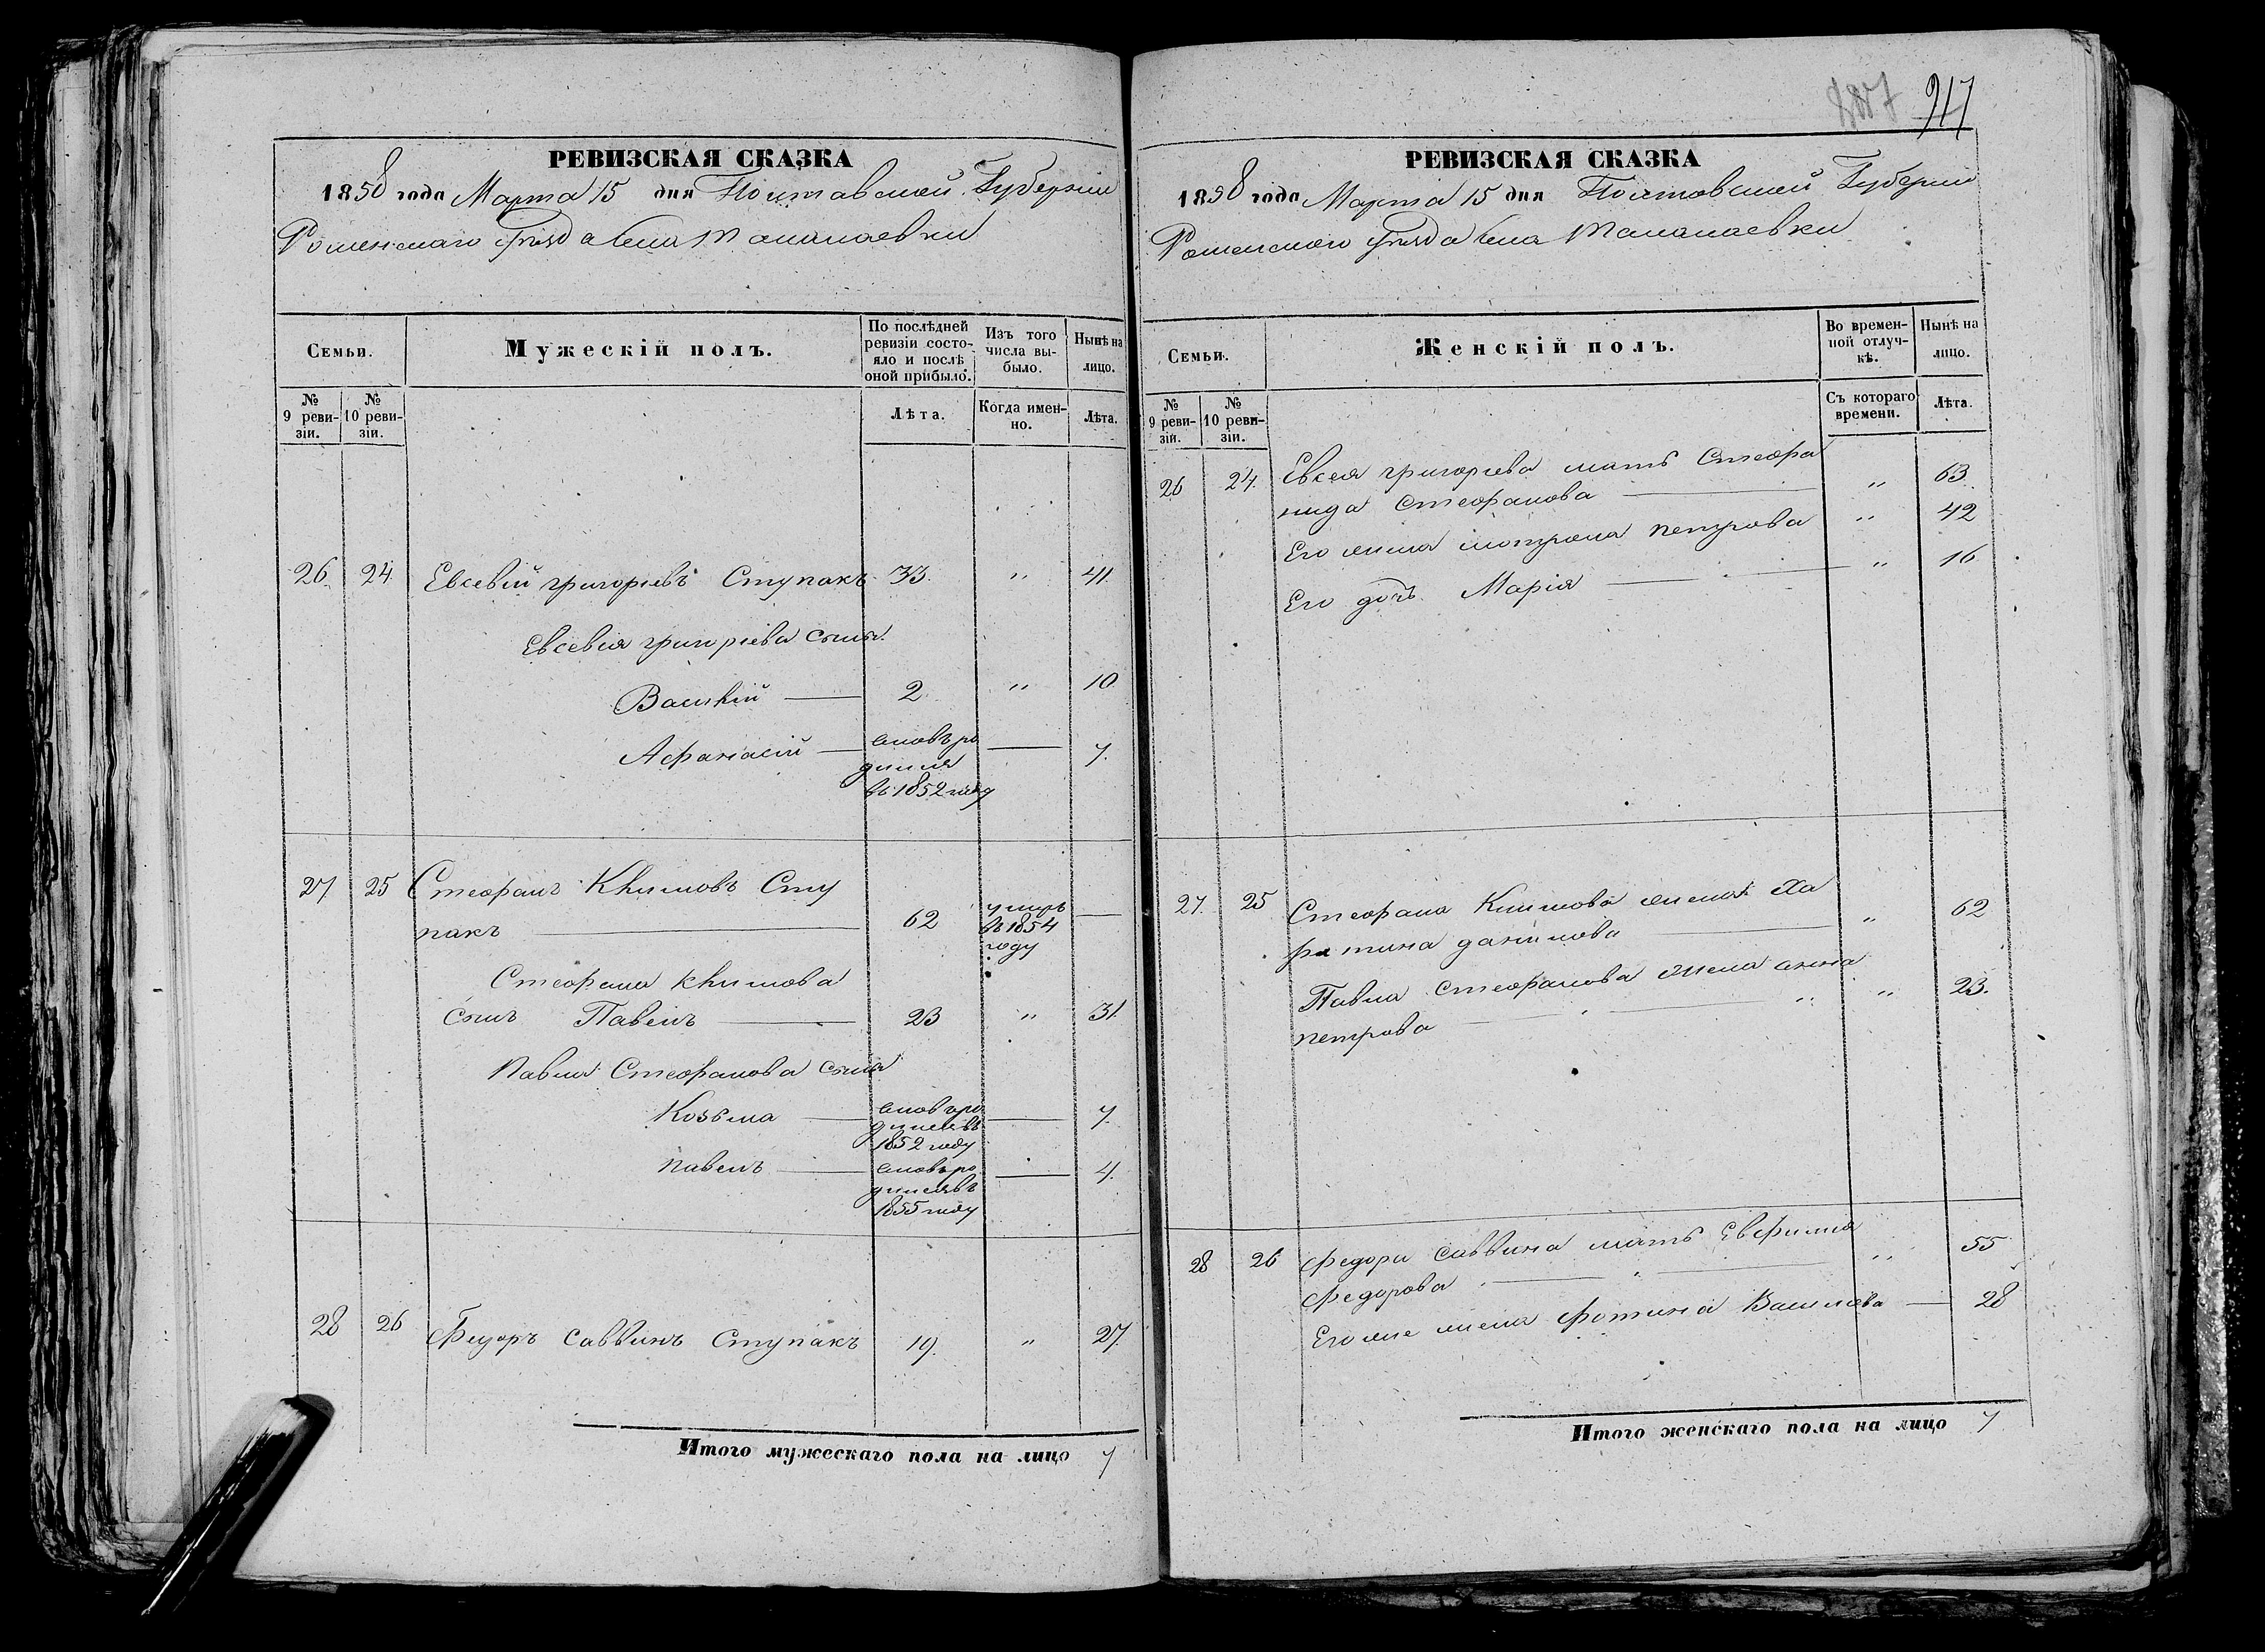 РЕВИЗСКАЯ СКАЗКА
1858 года Марта 15 дня Полтавской Губерніи
Роменскаго Уѣзда Села Талалаевки
Семьи.
Мужескій полъ.
По послѣдней ревизіи состояло и послѣ оной прибыло.
Изъ того числа выбыло.
Нынѣ на лицо.
№ 9 ревизіи.
№ 10 ревизіи.
Лѣта.
Когда именно.
Лѣта.
26. 24. Евсевій григоріевъ Ступакъ 33. " 41.
Евсевія григоріева сыны.
Василій 2. " 10.
Афанасій 7.
вновь ро
дился
въ 1852 году
27 25 Стефанъ Климовъ Сту
пакъ 62
умеръ
въ 1854
году
Стефана Климова
сынъ Павелъ 23 " 31.
Павла Стефанова сына
Козьма 7.
вновь ро
дился въ
1852 году
павелъ 4.
вновь ро
дился въ
1855 году
28 26 Федоръ Саввинъ Ступакъ 19. " 27.
Итого мужескаго пола на лицо 7
917
РЕВИЗСКАЯ СКАЗКА
1858 года Марта 15 дня Полтовской Губерніи
Роменского Уѣзда Села Талалаевки
Семьи.
Женскій полъ.
Во временной отлучкѣ.
Нынѣ на лицо.
№ 9 ревизіи.
№ 10 ревизіи.
Съ котораго времени.
Лѣта.
26 24. Евсея григорьева мать Стефа
нида Стефанова " 63.
Его жена мотрона петрова " 42
Его дочь Марія " 16
27. 25 Стефана Климова жена Ха
ритина данилова " 62
Павла Стефанова жена анна
петрова " 23.
28 26 Федора Саввина мать Евфимия
Федорова " 55
Его же жена Фотина Василова 28
Итого женскаго пола на лицо 7